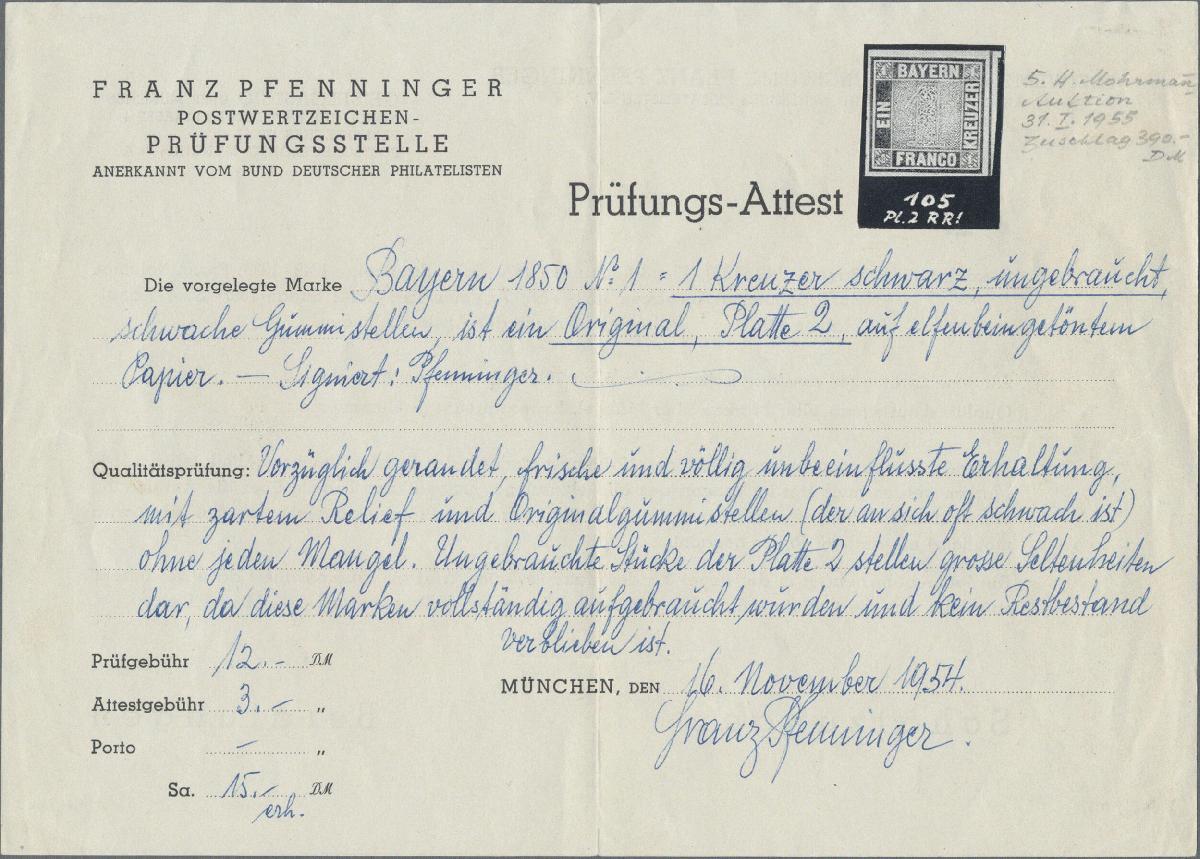 FRANZ PFENNINGER
POSTWERTZEICHEN-
PRÜFUNGSSTELLE
ANERKANNT VOM BUND DEUTSCHER PHILATELISTEN
BAYERN
EIN
KREUZER
FRANCO
105
Pl. 2 RR!
5. H. Mohrmann
Auktion
31. I. 1955
Zuschlag 390.-
DM
Prüfungs-Attest
Die vorgelegte Marke Bayern 1850 No. 1 = 1 Kreuzer schwarz, ungebraucht,
schwache Gummistellen, ist ein Original, Platte 2, auf elfenbeingetöntem
Papier. — Signiert: Pfenninger.
Qualitätsprüfung: Vorzüglich gerandet, frische und völlig unbeeinflusste Erhaltung,
mit zartem Relief und Originalgummistellen (der an sich oft schwach ist)
ohne jeden Mangel. Ungebrauchte Stücke der Platte 2 stellen grosse Seltenheiten
dar, da diese Marken vollständig aufgebraucht wurden und kein Restbestand
verblieben ist.
Prüfgebühr 12.- DM
MÜNCHEN, DEN 16. November 1954.
Attestgebühr 3.- „
Franz Pfenninger.
Porto - „
Sa. 15.- DM
erh.